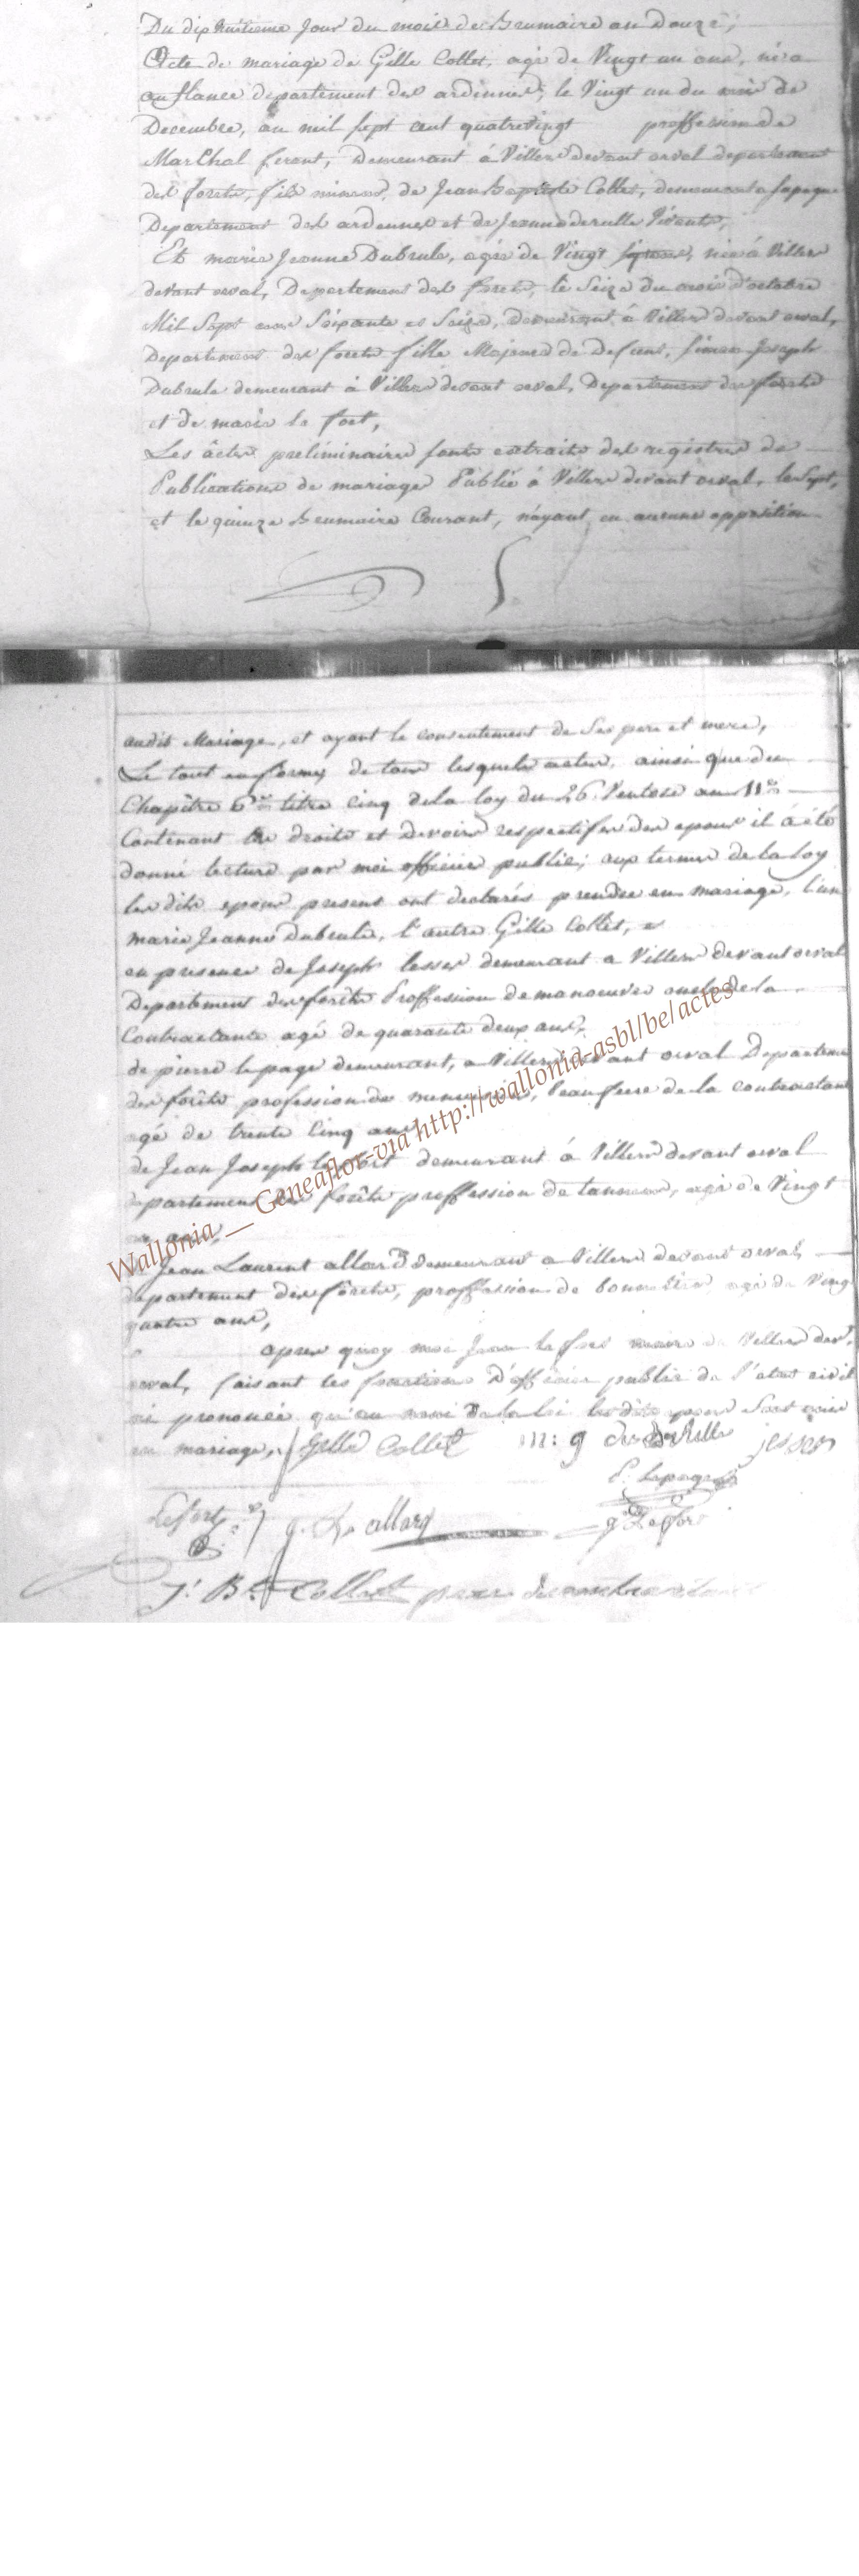 Du dix huitieme Jour du mois de Brumaire an Douze;
Acte de mariage de Gille Collet, agé de Vingt un ans, né a
departement des ardennes, le Vingt un du mois de
Decembre, an mil sept cent quatrevingt proffession de
MarChal ferant, demeurant à Villers devant orval departement
des forets, fils mineur, de Jean baptiste Collet, demeurant a
Departement des ardennes et de Jeanne Vivante,
Et marie Jeanne Dubrule, agée de Vingt née à Villers
devant orval, Departement des forets, le Seize du mois d'octobre
Mil Sept cent Soixante et Seize, demeurant à Villers devant orval,
Departement des forets fille Majeure de Defunt, Joseph
Dubrule demeurant à Villers devant orval, Departement des forets
et de marie le fort,
Les âctes preliminaires sont extraits des registres de
Publications de mariage Publié à Villers devant orval, le Sept,
et le quinze Brumaire Courant, n'ayant eu aucune opposition
audit Mariage, et ayant le consentement de Ses pere et mere,
Le tout en formes de tous lesquels actes, ainsi que du
Chapitre 6me titre Cinq de la loy du 26 Ventose an 11me
Contenant les droits et Devoirs respectifs des epoux il a été
donné lecture par moi officier public; aux termes de la loy
les dits epoux presens ont declarés prendre en mariage, l'un
marie Jeanne Dubrule, l'autre Gille Collet, et
en presence de Joseph lesser demeurant a Villers devant orval
Departement des forêts Proffession de manoeuvre oncle de la
Contractante agé de quarante deux ans,
de pierre le page demeurant, a Villers devant orval Departement
des forêts profession de beau frere de la contractante
agé de trente Cinq ans
de Jean Joseph demeurant à Villers devant orval
departement des forêts proffession de tanneur, agé de Vingt
ans,
Jean Laurent allard demeurant a Villers devant orval,
departement des forêts, proffession de agé de Vingt
quatre ans,
apres quoy moi Jean lefort maire de Villers devt
orval, faisant les fonctions D'officier public de l'etat civil
ai prononcé qu'au nom de la loi les dits epoux Sont unis
en mariage, Gille Collet m: g jesser
P. Lepage
Lefort g. L. allard g Lefort
J. Bte Collet pere
Wallonia __ Geneaflor-via http://wallonia-asbl/be/actes